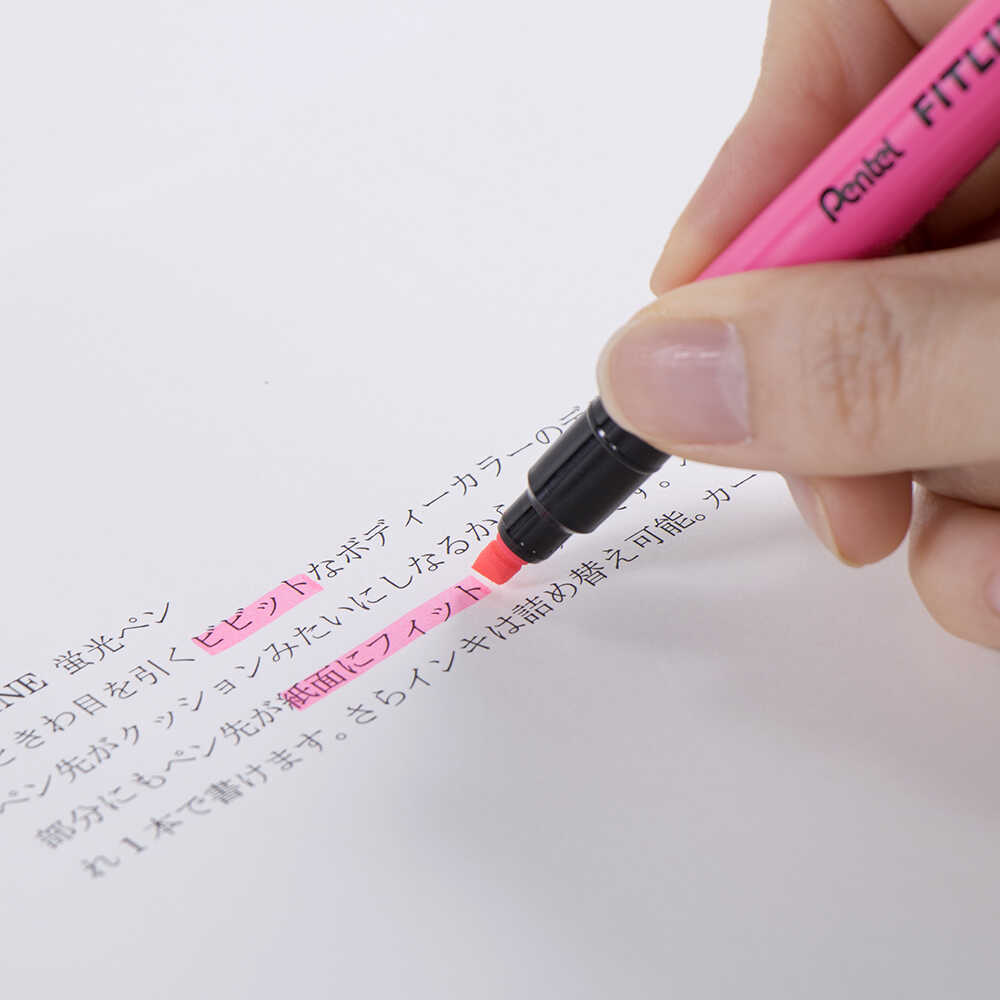 Pentel FITLI
NE 蛍光ペン
ときわ目を引くビビットなボディーカラーのデ
ペン先がクッションみたいにしなるから
部分にもペン先が紙面にフィット す。
れ1本で書けます。さらインキは詰め替え可能。カー